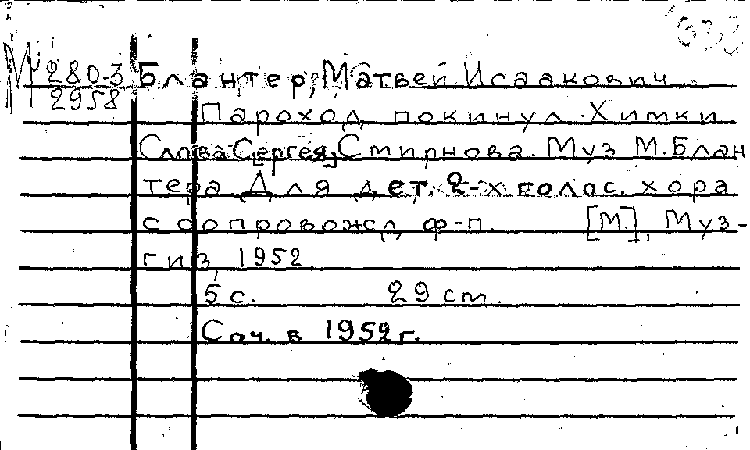 М 280-3 Блантер, Матвей Исаакович.
2958
Пароход покинул Химки
Слова Сергея Смирнова. Муз М. Блан
тера. Для дет. 2-х голос. хора
с сопровожд. ф-п. [М], Муз-
гиз, 1952
5 с. 29 cm.
Соч. в 1952 г.